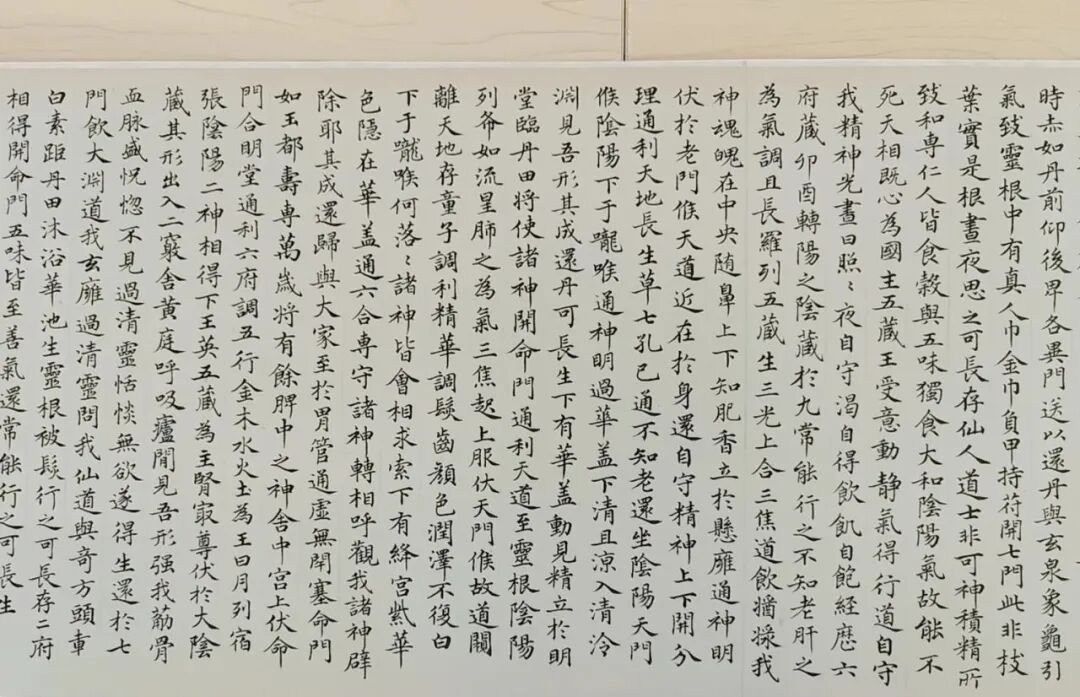 時赤如丹前仰後畀各異門送以還丹與玄泉象龜引
氣致靈根中有真人巾金巾負甲持苻開七門此非枝
葉實是根晝夜思之可長存仙人道士非可神積精所
致和専仁人皆食榖與五味獨食大和陰陽氣故能不
死天相既心為國主五藏王受意動静氣得行道自守
我精神光晝日照〻夜自守渴自得飲飢自飽經歴六
府藏卯酉轉陽之陰藏於九常能行之不知老肝之
為氣調且長羅列五藏生三光上合三焦道飲醬漿我
神魂魄在中央随鼻上下知肥香立於懸廱通神明
伏於老門候天道近在於身還自守精神上下開分
理通利天地長生草七孔已通不知老還坐陰陽天門
候陰陽下于嚨喉通神明過華盖下清且涼入清泠
渊見吾形其成還丹可長生下有華盖動見精立於明
堂臨丹田将使諸神開命門通利天道至靈根陰陽
列爷如流星肺之為氣三焦起上服伏天門候故道闚
離天地存童子調利精華調髮齒顔色潤澤不復白
下于嚨喉何落〻諸神皆會相求索下有絳宫紫華
色隱在華盖通六合専守諸神轉相呼觀我諸神辟
除耶其成還歸與大家至於胃管通虚無閉塞命門
如王都壽専萬歳将有餘脾中之神舎中宫上伏命
門合明堂通利六府調五行金木水火土為王日月列宿
張陰陽二神相得下王英五藏為主腎㝡尊伏於大陰
藏其形出入二竅舎黄庭呼吸廬間見吾形强我筋骨
血脉盛怳惚不見過清靈恬惔無欲遂得生還於七
門飲大渊道我玄廱過清靈問我仙道與奇方頭車
白素距丹田沐浴華池生靈根被髮行之可長存二府
相得開命門五味皆至善氣還常能行之可長生